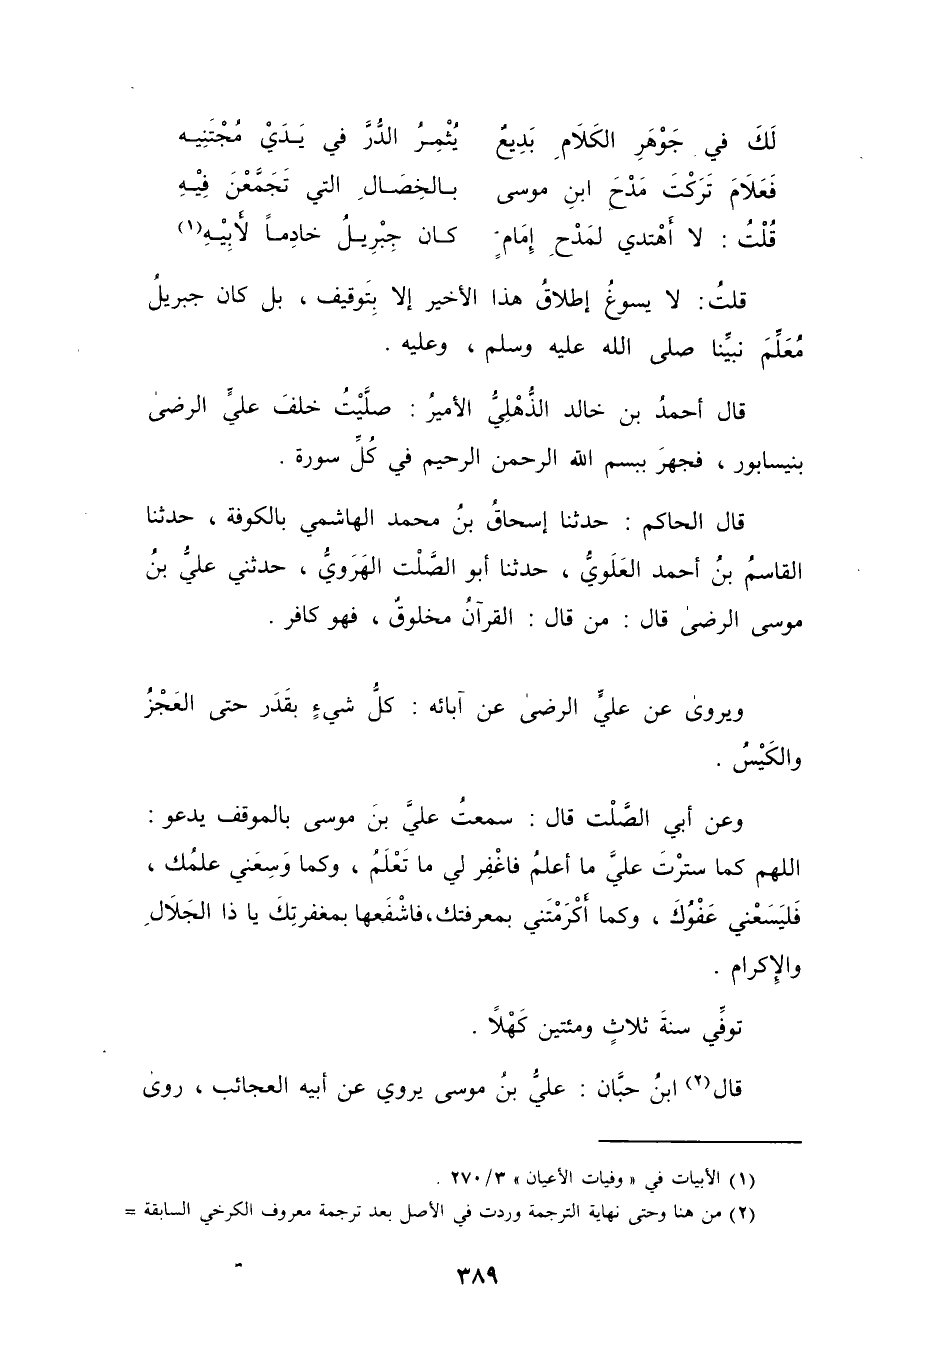 لَكَ في جَوْهَرِ الكَلَامِ بَدِيعٌ يُثْمِرُ الدُّرَّ في يَدَيْ مُجْتَنِيه
فَعَلَامَ تَرَكْتَ مَدْحَ ابنِ موسى بالخِصَالِ التي تَجَمَّعْنَ فِيْهِ
قُلْتُ : لا أَهْتدي لمَدْحِ إِمَامٍ كان جِبْرِيلُ خادِماً لأَبِيْهِ(١)
قلتُ: لا يسوغُ إطلاقُ هذا الأخير إلا بِتَوقيف ، بل كان جبريلُ
مُعَلِّمَ نبيِّنا صلى الله عليه وسلم ، وعليه .
قال أحمدُ بن خالد الذُّهْلِيُّ الأميرُ : صلَّيْتُ خلفَ عليٍّ الرضىٰ
بنيسابور ، فجهرَ ببسم الله الرحمن الرحيم في كُلِّ سورة .
قال الحاكم : حدثنا إسحاقُ بنُ محمد الهاشمي بالكوفة ، حدثنا
القاسمُ بنُ أحمد العَلَويُّ ، حدثنا أبو الصَّلْت الهَرَويُّ ، حدثني عليُّ بنُ
موسى الرضىٰ قال : من قال : القرآنُ مخلوقٌ ، فهو كافر .
ويروىٰ عن عليٍّ الرضىٰ عن آبائه : كلُّ شيءٍ بقَدَر حتى العَجْزُ
والكَيْسُ .
وعن أبي الصَّلْت قال : سمعتُ عليَّ بنَ موسى بالموقف يدعو :
اللهم كما سترْتَ عليَّ ما أعلمُ فاغْفِر لي ما تَعْلَمُ ، وكما وَسِعَني علمُك ،
فَليَسَعْني عَفْوُكَ ، وكما أَكْرَمْتَني بمعرفتك،فاشْفَعها بمغفرتِكَ يا ذا الجَلَالِ
والإِكرام .
توفِّي سنةَ ثلاثٍ ومئتين كَهْلًا .
قال(٢) ابنُ حبَّان : عليُّ بنُ موسى يروي عن أبيه العجائب ، روىٰ
(١) الأبيات في « وفيات الأعيان » ٣/٢٧٠ .
(٢) من هنا وحتى نهاية الترجمة وردت في الأصل بعد ترجمة معروف الكرخي السابقة =
٣٨٩